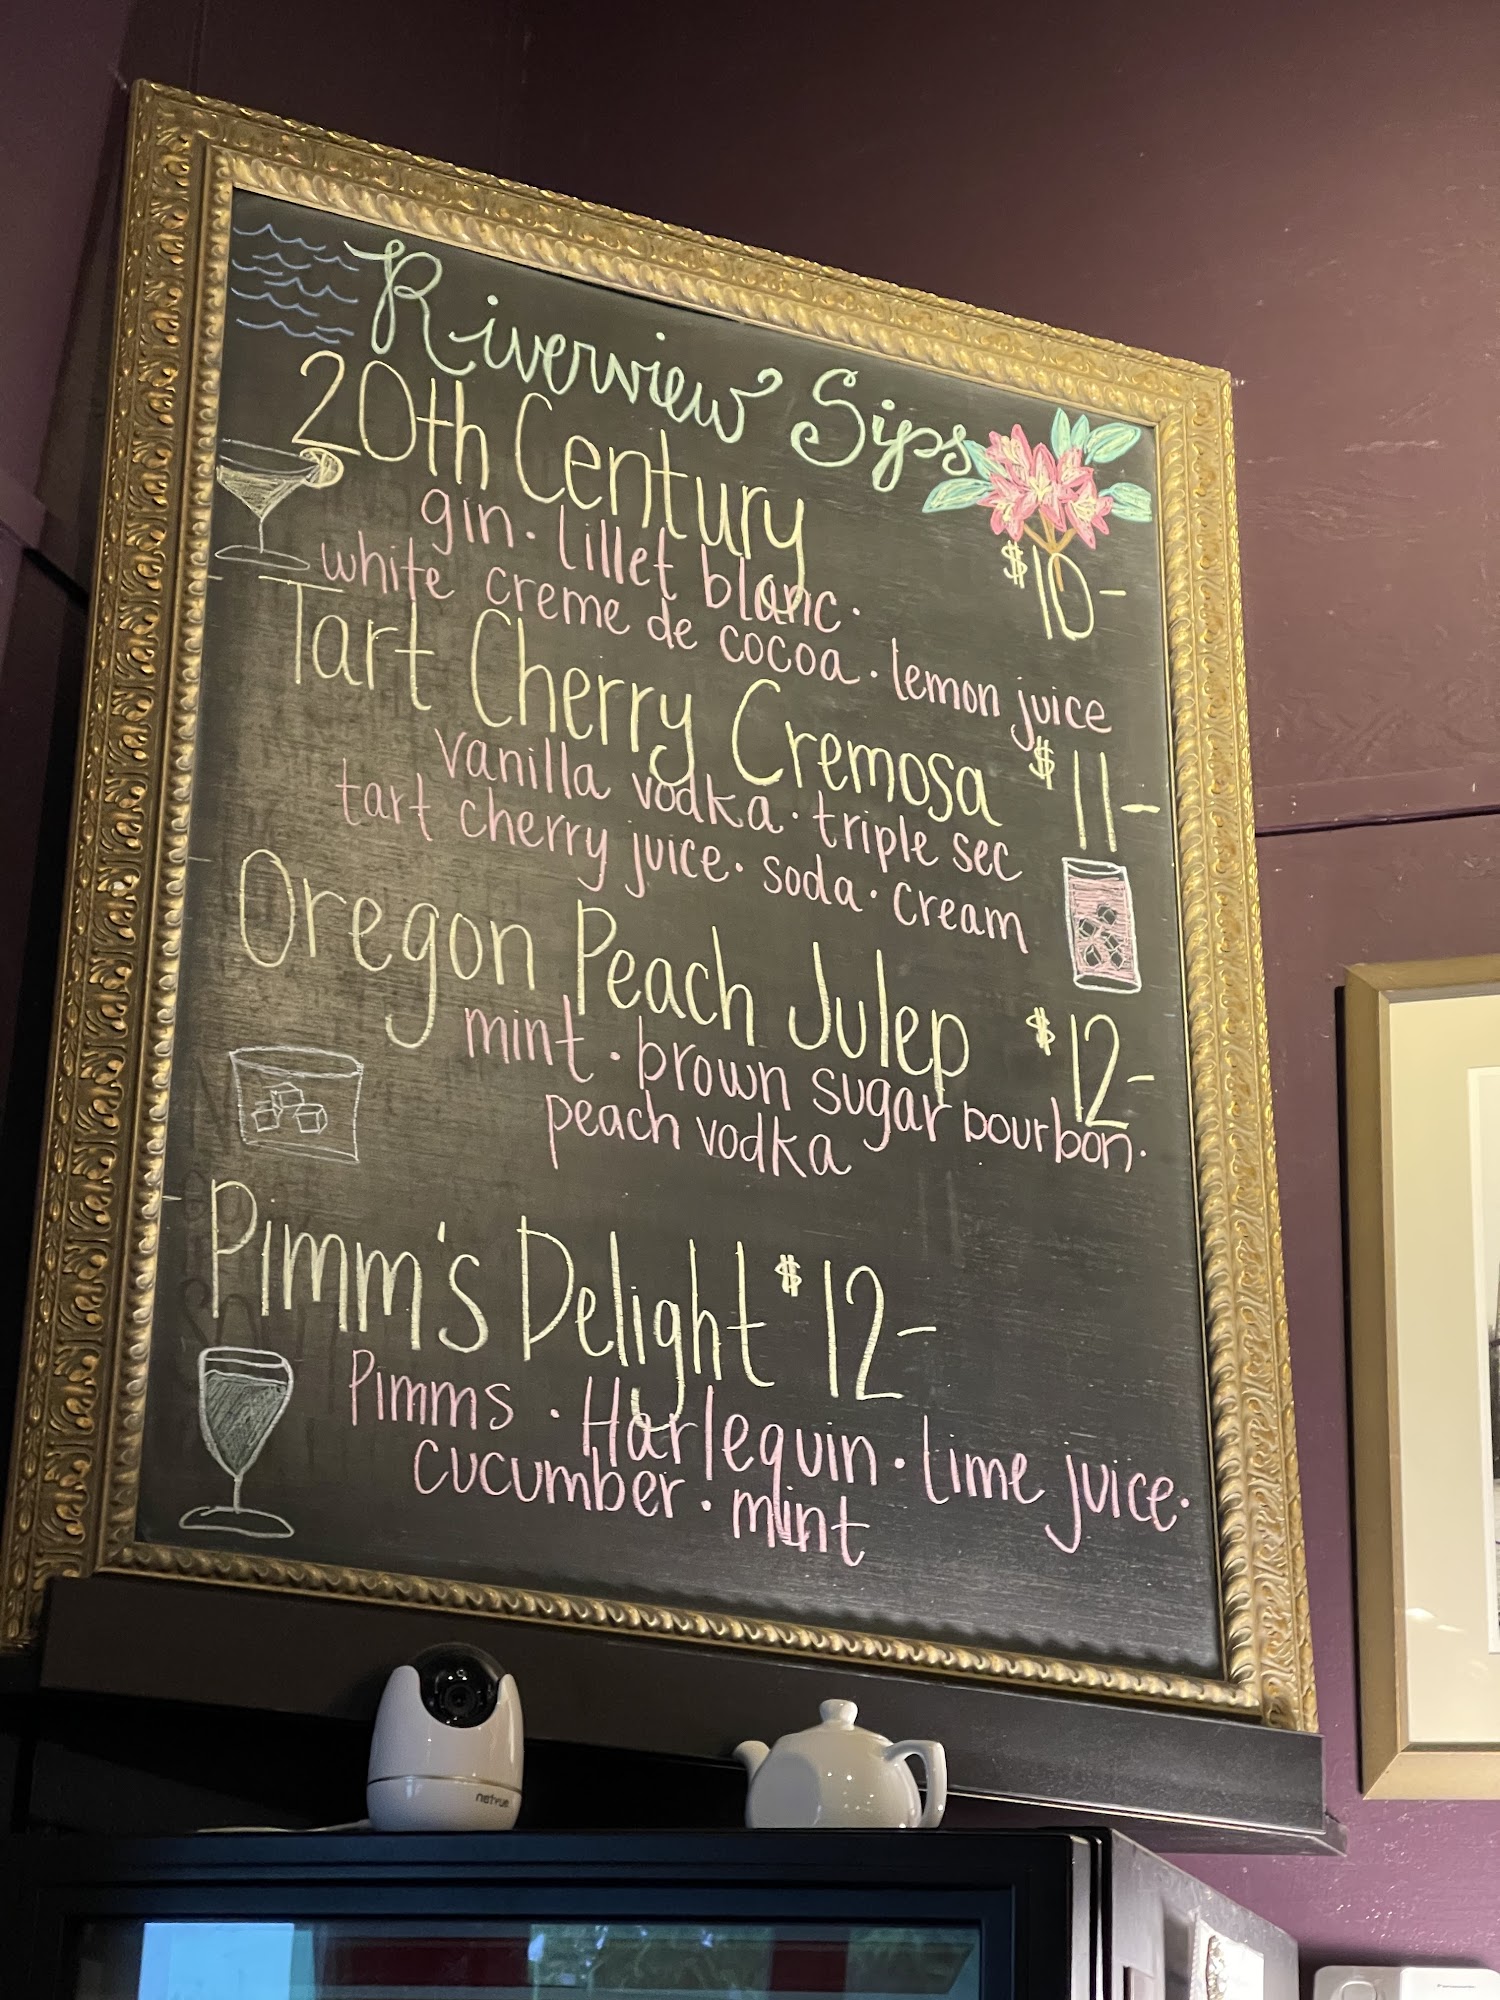 Riverview Sips
20th Century
gin · lillet blanc ·
$10-
white creme de cocoa · lemon juice
Tart Cherry Cremosa $11-
vanilla vodka · triple sec
tart cherry juice · soda · cream
Oregon Peach Julep $12-
mint · brown sugar bourbon ·
peach vodka
Pimm's Delight $12-
Pimms · Harlequin · lime juice ·
cucumber · mint
netvue
Panasonic